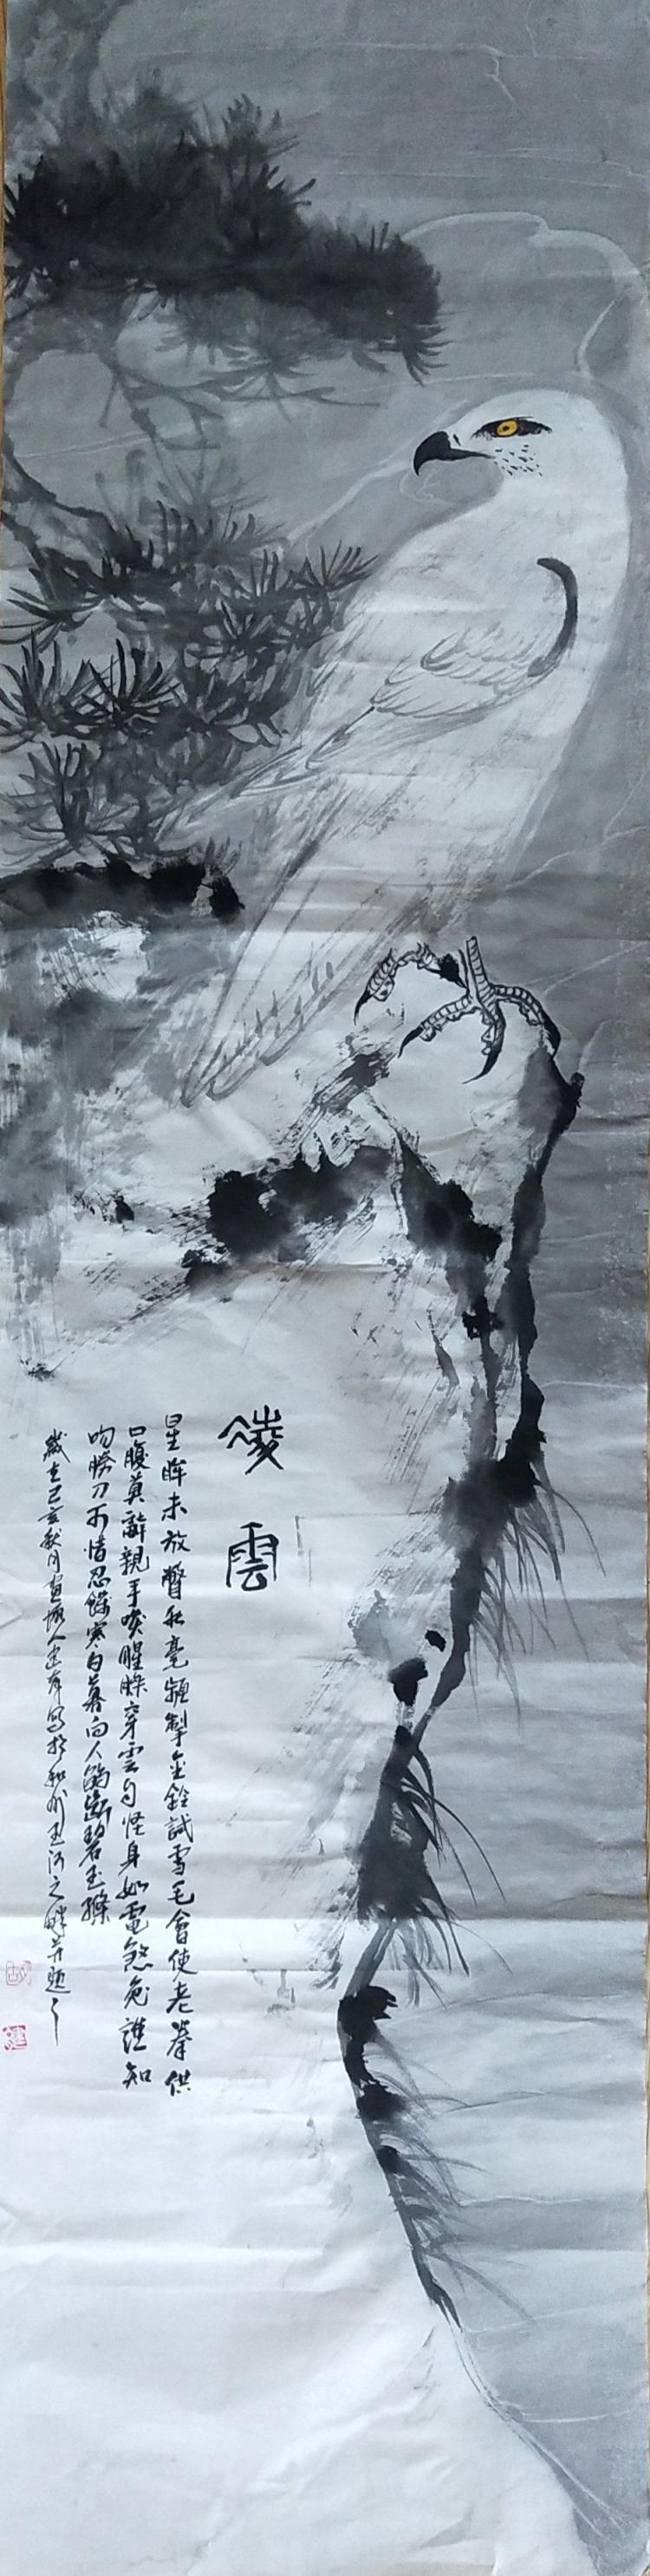 凌雲
星眸未放瞥秋毫頻掣金鋑試雪毛會使老拳供
口腹莫辭親手啖腥臊穿雲自怪身如電煞兔誰知
吻勝刀不惜忍饑寒日暮向人鶻斷碧玉絛
歲在己亥秋月畫於和州玉河之畔并題